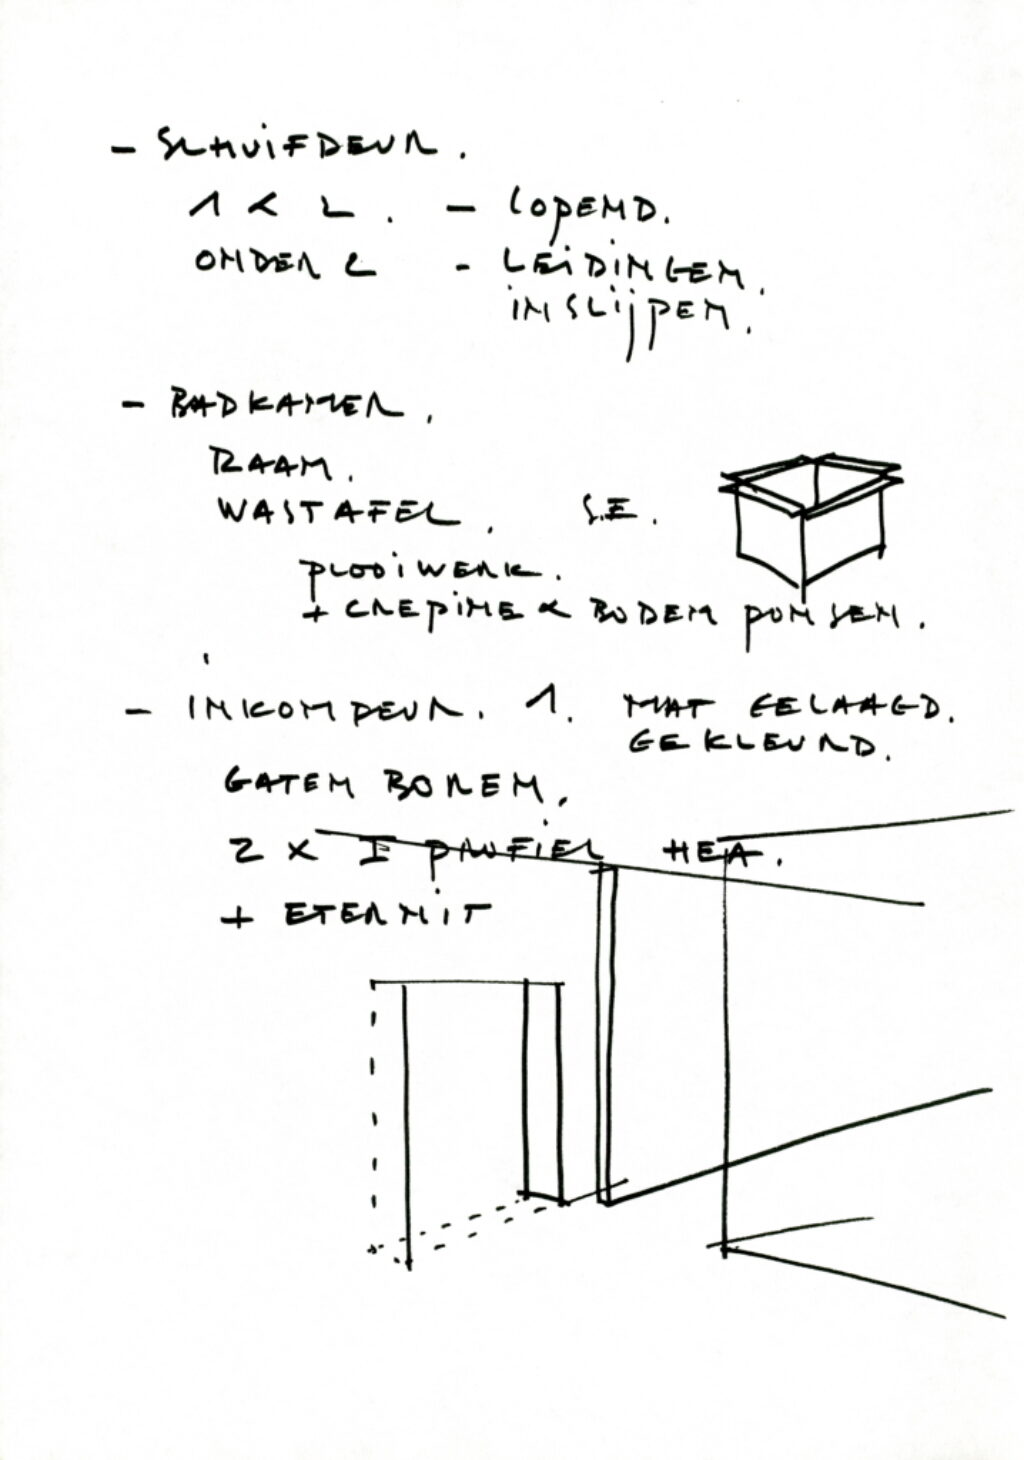 - SCHUIFDEUR.
1 < L. - LOPEND.
ONDER L - LEIDINGEN.
INSLIJPEN.
- BADKAMER.
RAAM.
WASTAFEL. S.E.
PLOOIWERK.
+ CREPINE & BODEM PONSEN.
- INKOMDEUR. 1. MAT GELAAGD.
GEKLEURD.
GATEN BOREN.
2 X I PROFIEL HEA.
+ ETERNIT